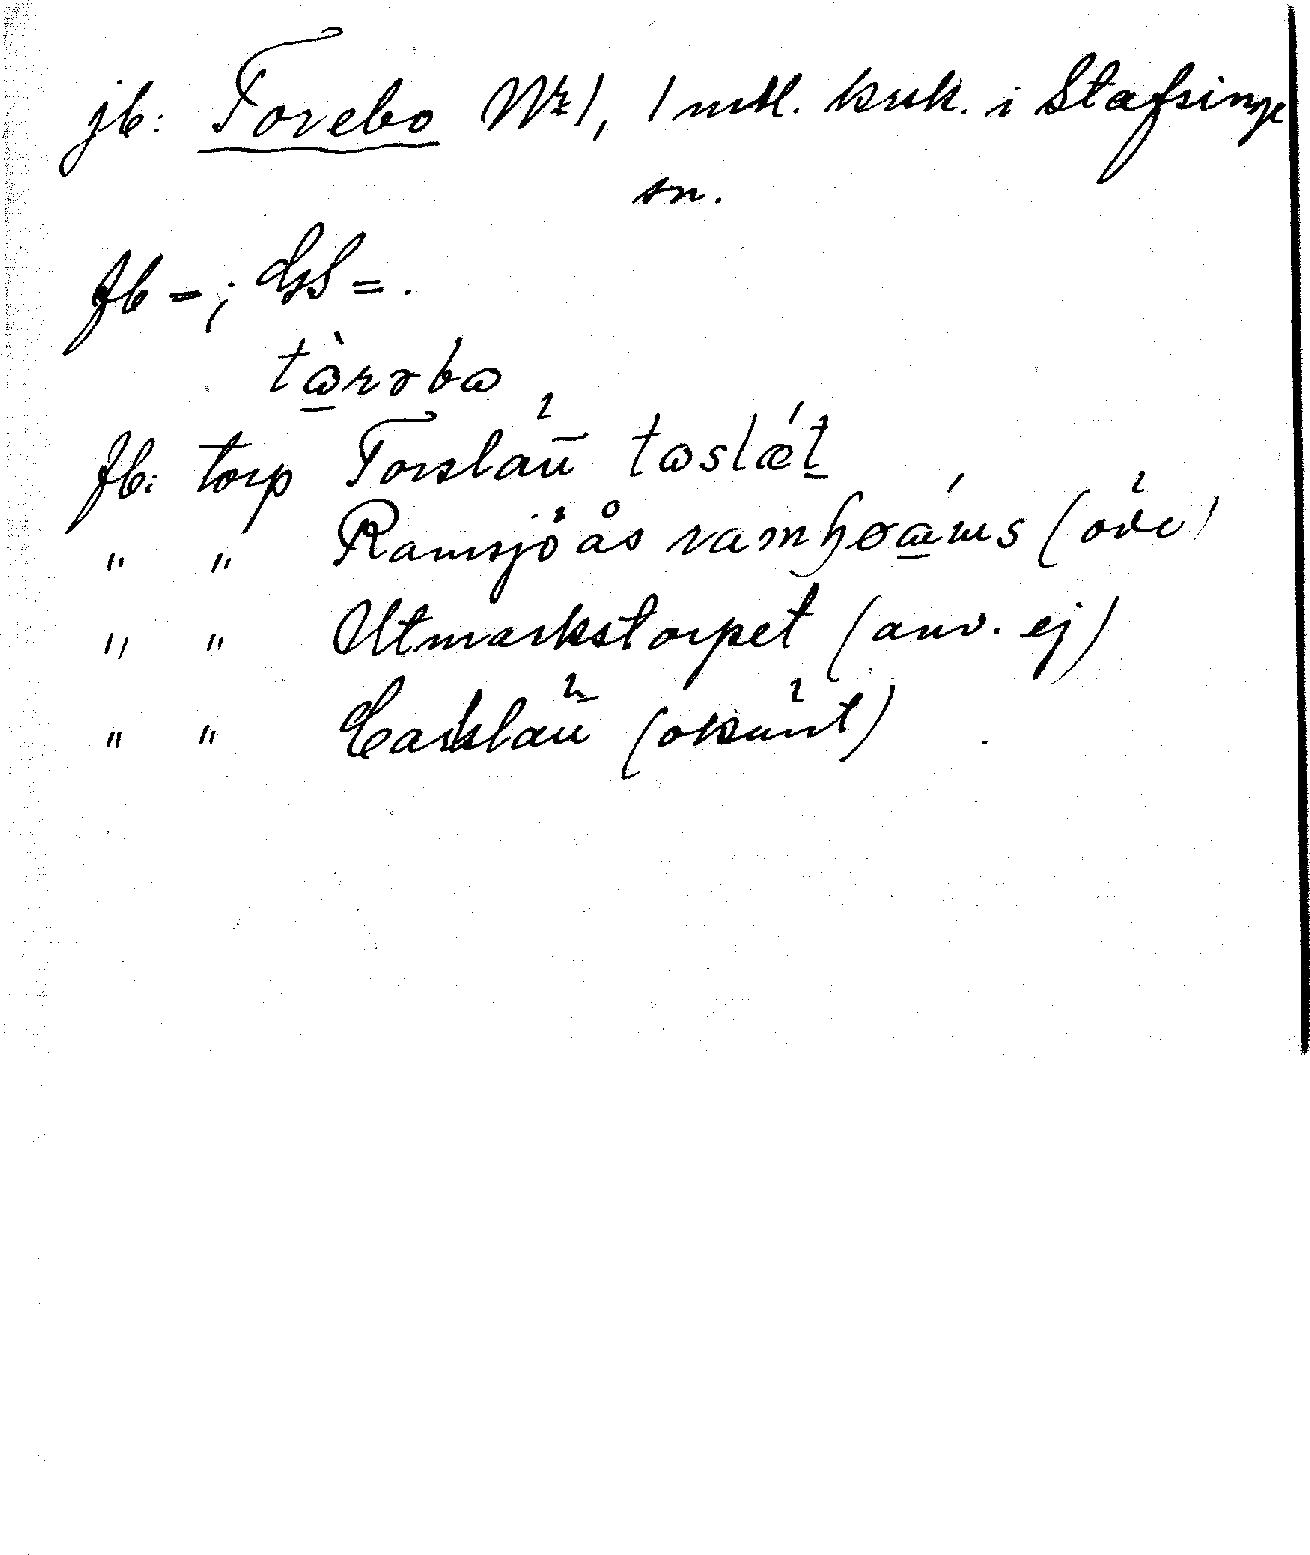 jb: Torebo No 1, 1 mtl. krsk. i Stafsinge
sn.
fb =; GS =.
tàrəba
fb: torp Torslätt taslǽt
" " Ramsjöås (öde)
" " Utmarkstorpet (anv. ej)
" " Carlslätt (okänt)